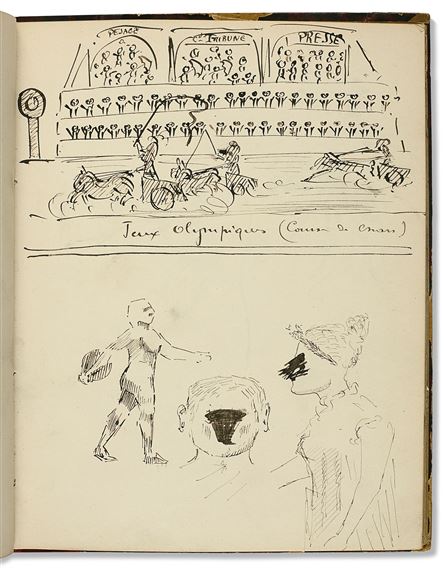 PESAGE
Cᵉ TRIBUNE
PRESSE
Jeux Olympiques (Course de chars)